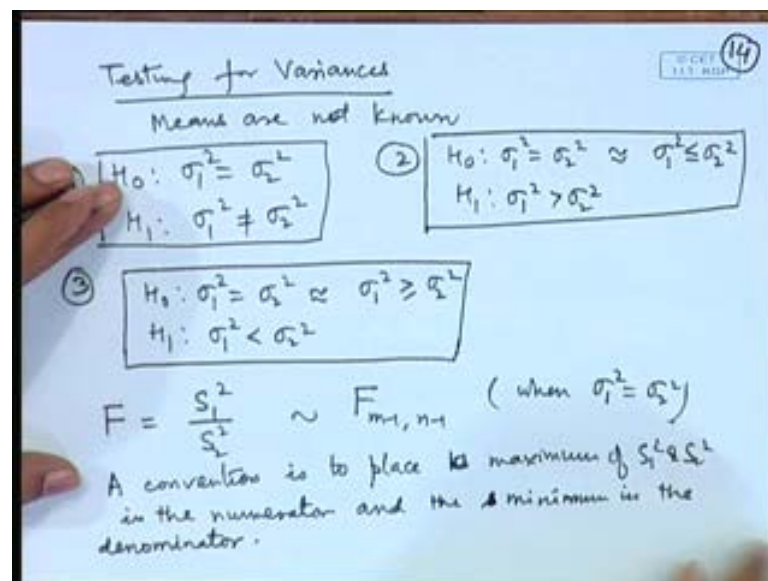 14
© CET
I.I.T. KGP
Testing for Variances
Means are not known
H₀: σ₁² = σ₂²
H₁: σ₁² ≠ σ₂²
② H₀: σ₁² = σ₂² ≈ σ₁² ≤ σ₂²
H₁: σ₁² > σ₂²
③ H₀: σ₁² = σ₂² ≈ σ₁² ≥ σ₂²
H₁: σ₁² < σ₂²
F = S₁²/S₂² ~ F m-1, n-1 (when σ₁² = σ₂²)
A convention is to place maximum of S₁² & S₂²
in the numerator and the minimum in the
denominator.